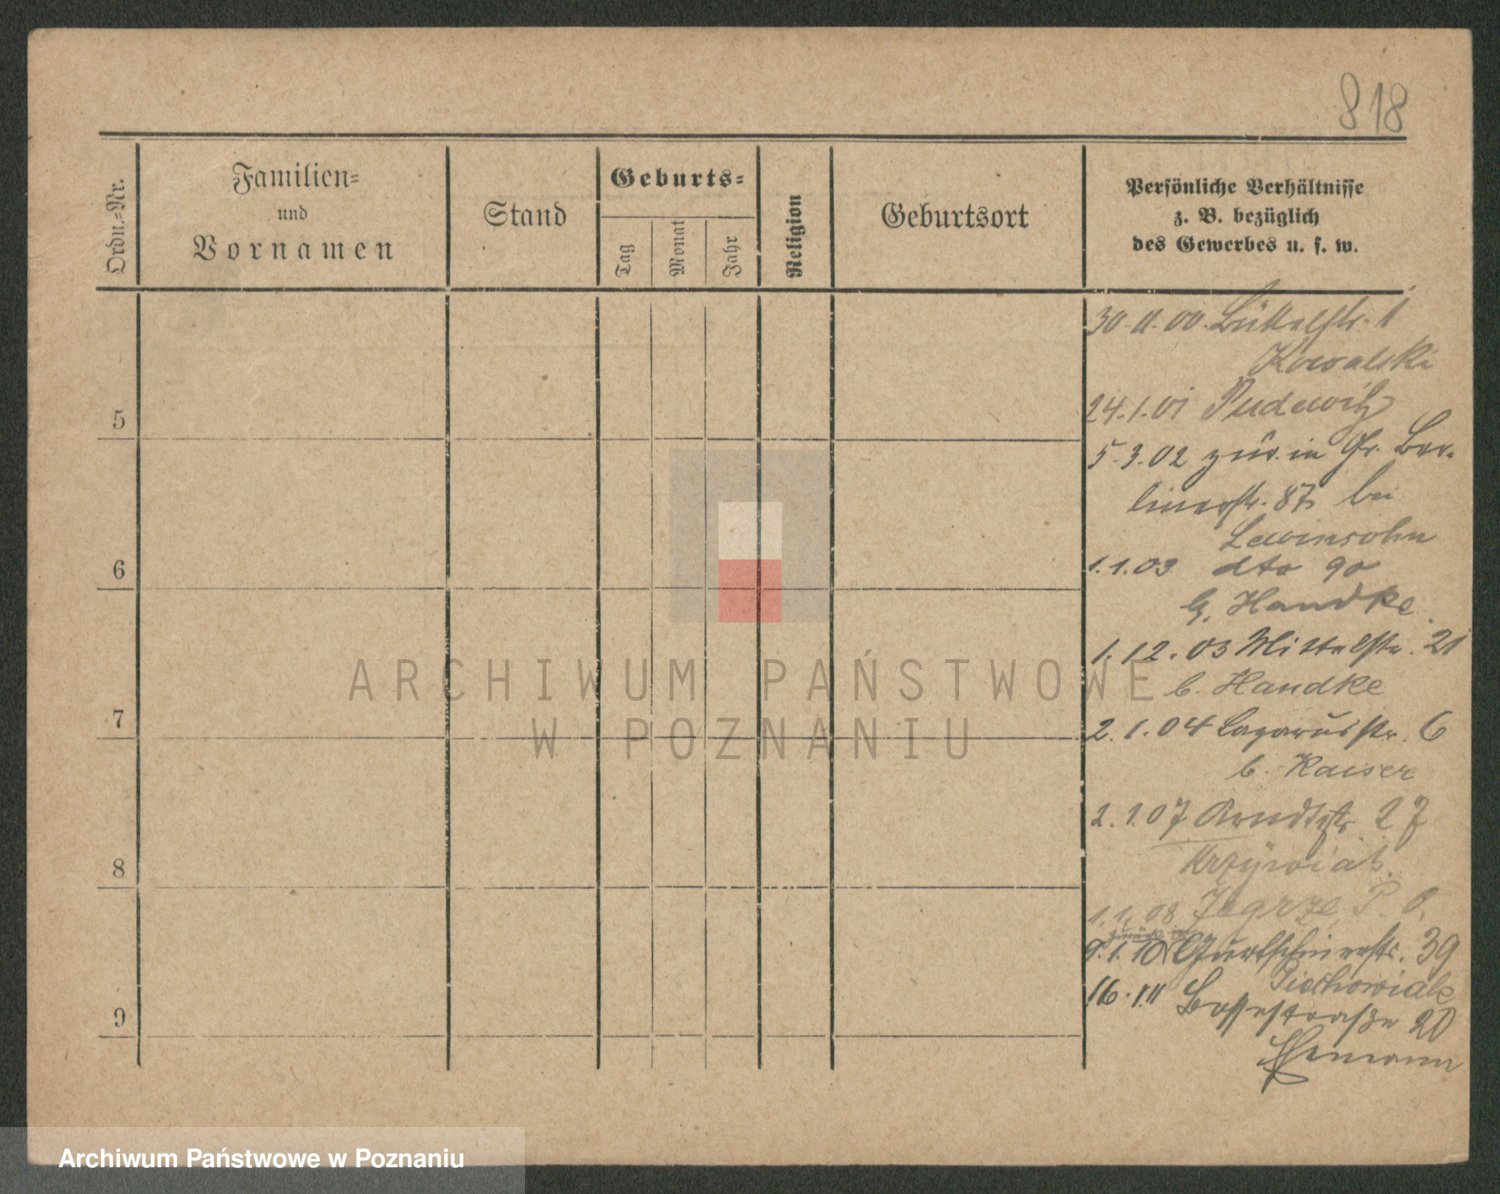 818
Ordn.-Nr.
Familien-
und
Vornamen
Stand
Geburts-
Tag
Monat
Jahr
Religion
Geburtsort
Persönliche Verhältnisse
z. B. bezüglich
des Gewerbes u. s. w.
5
6
7
8
9
30.11.00. 1
Kowalski
24.1.01 Pudewitz
5.3.02 zur. in Gr. Ber-
linerstr. 87 bei
Lewinsohn
1.1.03 dto 90
b. Handke
1.12.03 Mittelstr. 21
b. Handke
2.1.04 Lazarusstr. 6
b. Kaiser
2.1.07 Arndtstr. 27
Krzywiak
1.1.08 Zegrze P. O.
9.1.10 Gurtschinerstr. 39
Piechowiak
16.1.11 Bossestraße 20
ARCHIWUM PAŃSTWOWE
W POZNANIU
Archiwum Państwowe w Poznaniu